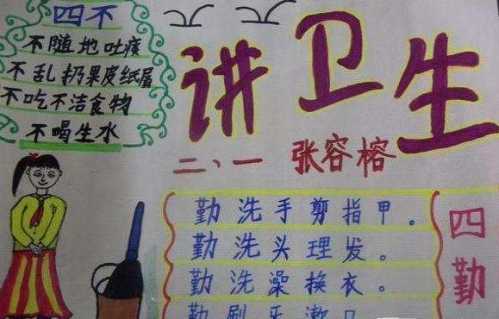 四不
不随地吐痰
不乱扔果皮纸屑
不吃不洁食物
不喝生水
讲卫生
二、一 张容榕
四勤
勤洗手剪指甲。
勤洗头理发。
勤洗澡换衣。
勤刷牙漱口